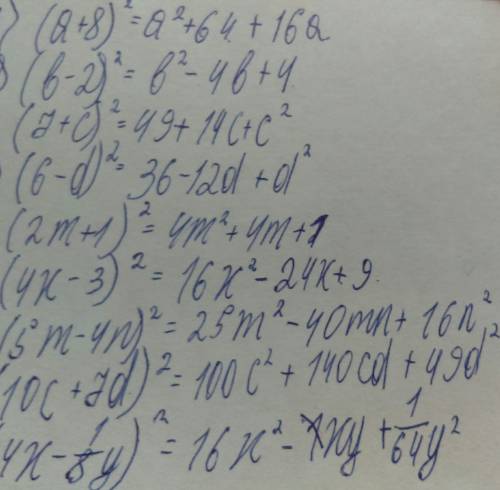 ) (a+8)² = a²+64 + 16a
) (b-2)² = b² - 4b+4
(7+c)² = 49+14c+c²
(6-d)² = 36-12d+d²
(2m+1)² = 4m²+4m+1
(4x-3)² = 16x²-24x+9
(5m-4n)² = 25m²-40mn+16n²
(10c+7d)² = 100c²+140cd+49d²
(4x-1/8y)² = 16x²-xy+1/64y²